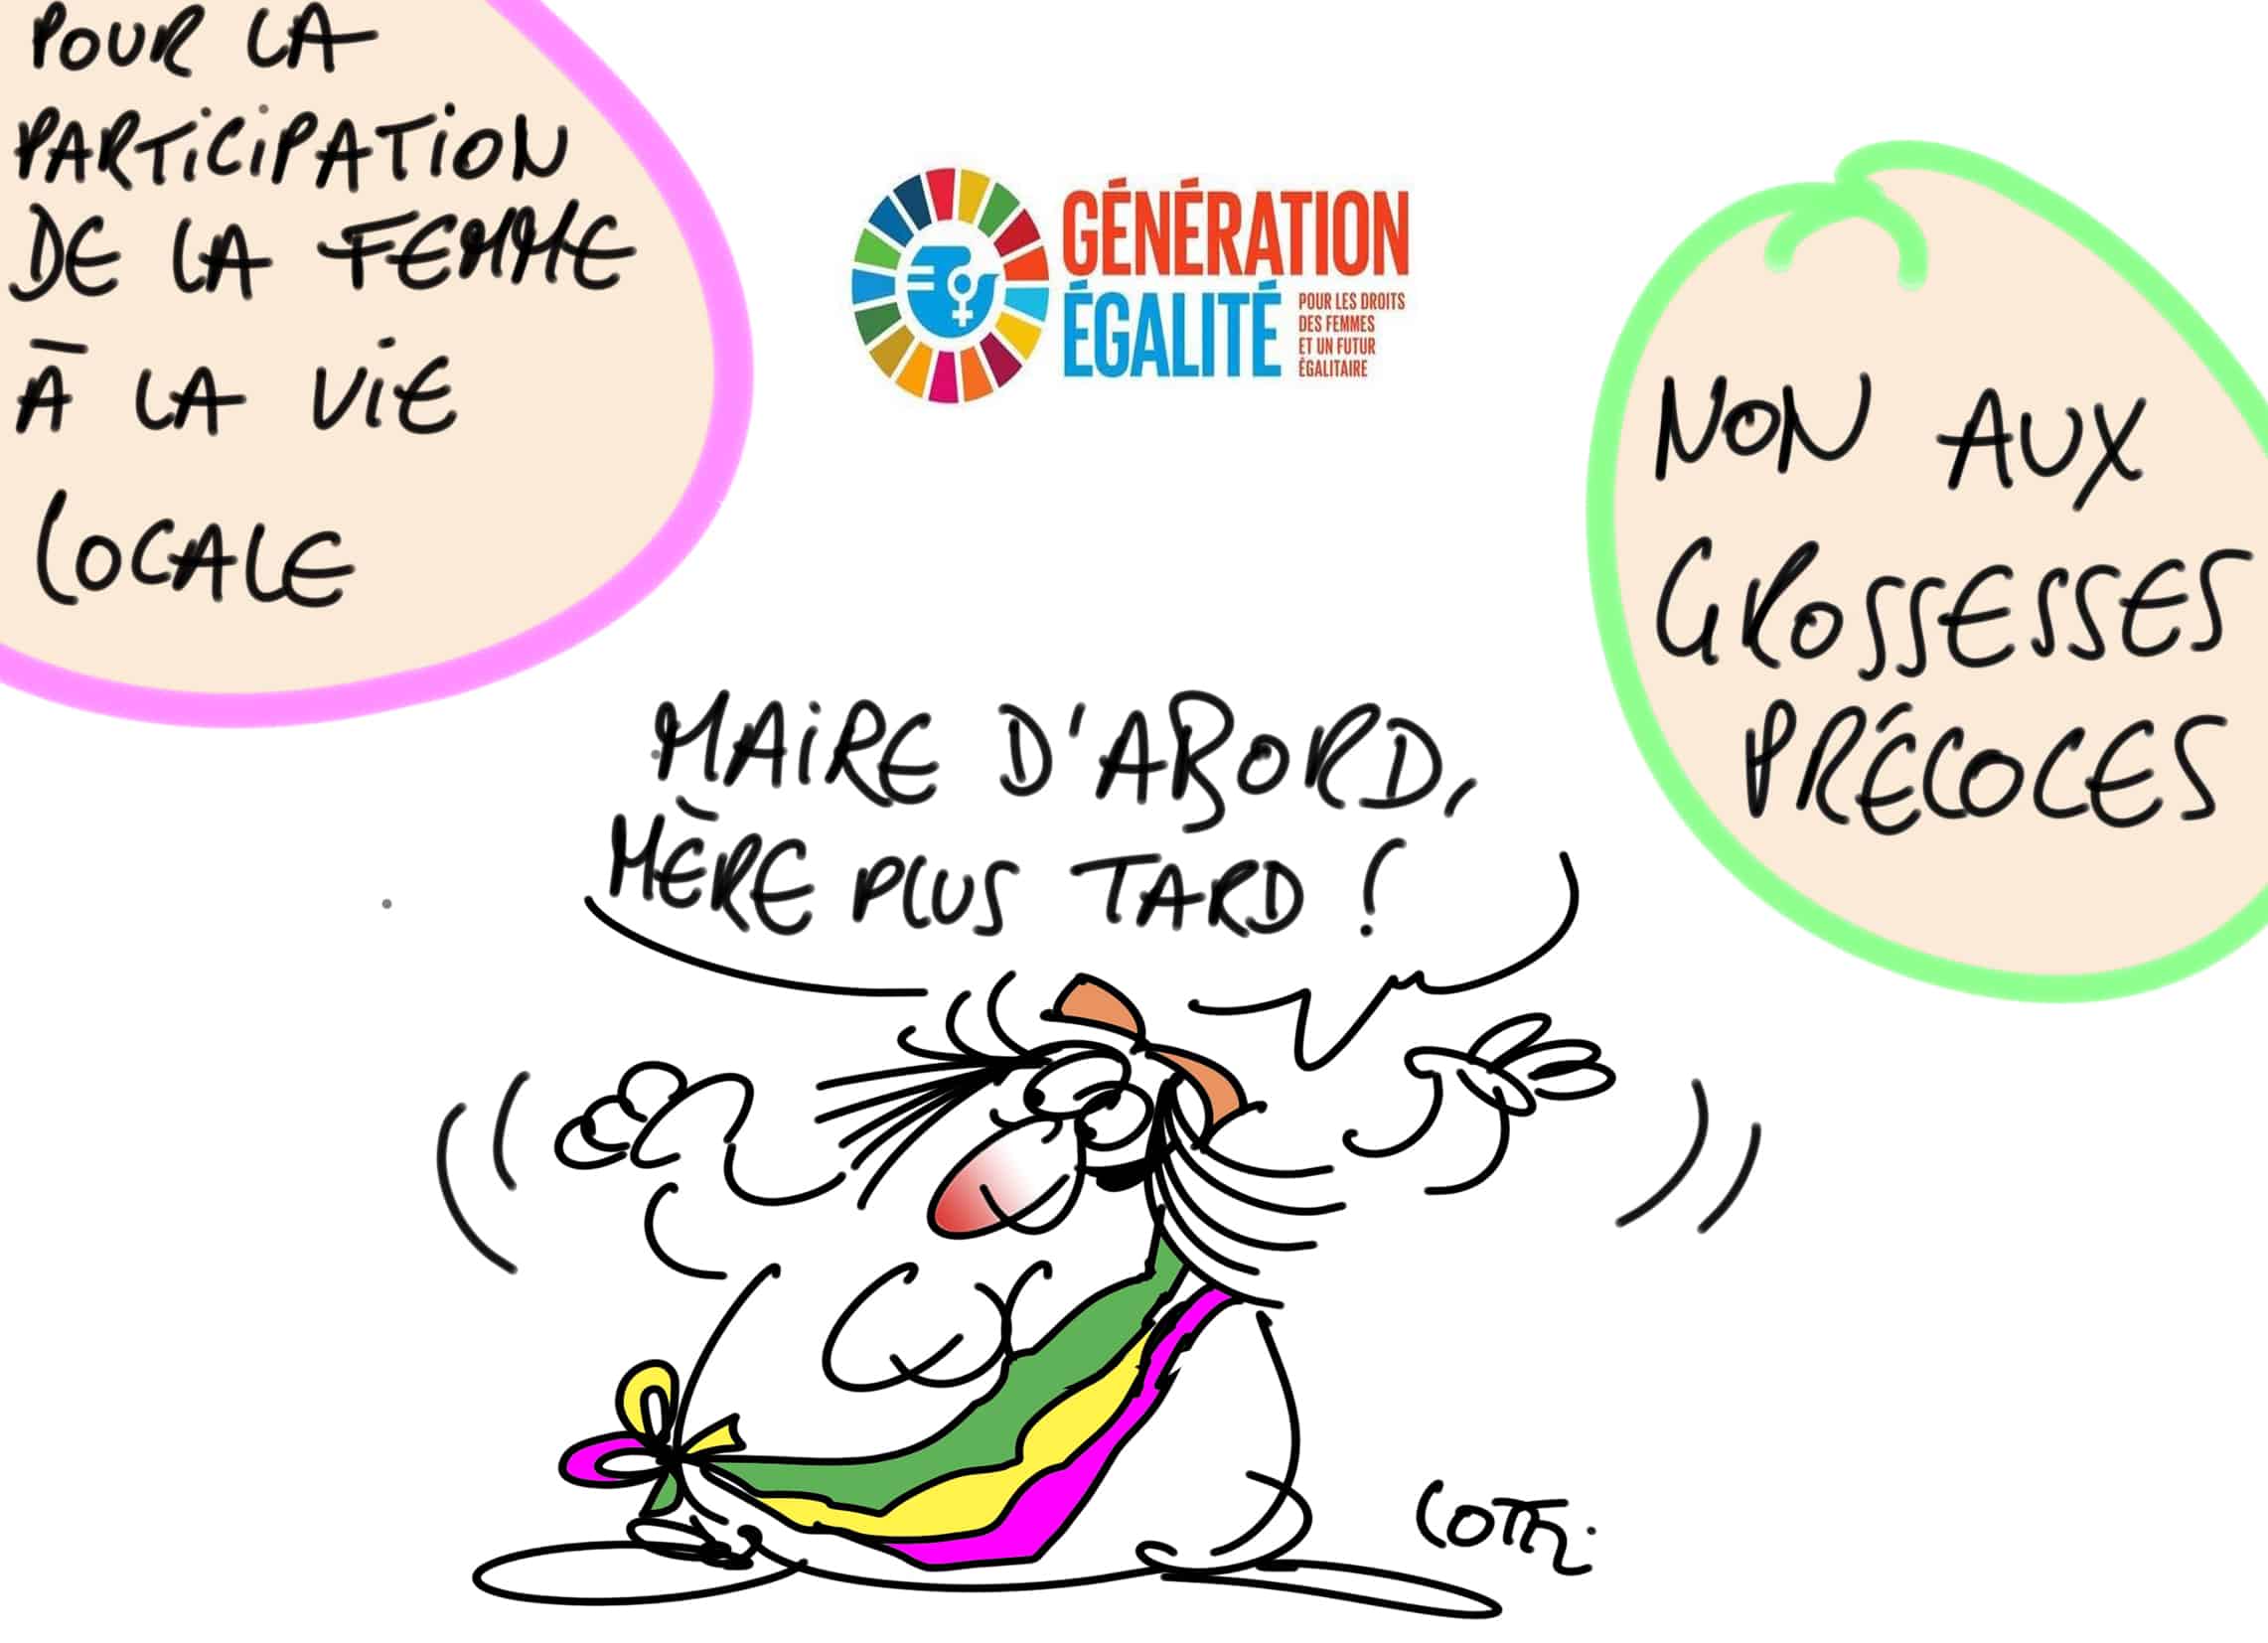 POUR LA
PARTiCiPATiON
DE LA FEMME
À LA ViE
LOCALE
GÉNÉRATION
ÉGALITÉ
POUR LES DROITS
DES FEMMES
ET UN FUTUR
ÉGALITAIRE
NON AUX
GROSSESSES
PRÉCOCES
MAiRE D'ABORD,
MÈRE PLUS TARD !